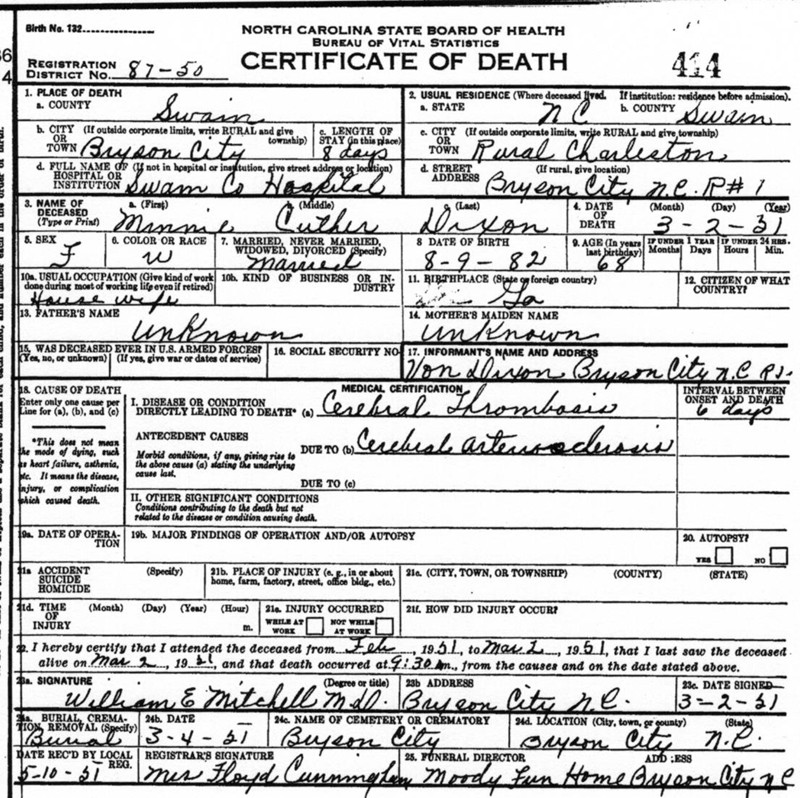 Birth No. 132
NORTH CAROLINA STATE BOARD OF HEALTH
BUREAU OF VITAL STATISTICS
CERTIFICATE OF DEATH
REGISTRATION DISTRICT No. 87-50
414
1. PLACE OF DEATH
a. COUNTY Swain
2. USUAL RESIDENCE (Where deceased lived. If institution: residence before admission).
a. STATE N C b. COUNTY Swain
b. CITY OR TOWN (If outside corporate limits, write RURAL and give township) Bryson City
c. LENGTH OF STAY (in this place) 8 days
c. CITY OR TOWN (If outside corporate limits, write RURAL and give township) Rural Charleston
d. FULL NAME OF HOSPITAL OR INSTITUTION (If not in hospital or institution, give street address or location) Swain Co Hospital
d. STREET ADDRESS (If rural, give location) Bryson City N.C. R#1
3. NAME OF DECEASED (Type or Print) a. (First) Minnie b. (Middle) Cuther c. (Last) Dixon
4. DATE OF DEATH (Month) (Day) (Year) 3-2-51
5. SEX F
6. COLOR OR RACE W
7. MARRIED, NEVER MARRIED, WIDOWED, DIVORCED (Specify) Married
8 DATE OF BIRTH 8-9-82
9. AGE (In years last birthday) 68
IF UNDER 1 YEAR Months Days
IF UNDER 24 HRS. Hours Min.
10a. USUAL OCCUPATION (Give kind of work done during most of working life even if retired) House wife
10b. KIND OF BUSINESS OR INDUSTRY
11. BIRTHPLACE (State or foreign country) Ga
12. CITIZEN OF WHAT COUNTRY?
13. FATHER'S NAME Unknown
14. MOTHER'S MAIDEN NAME Unknown
15. WAS DECEASED EVER IN U.S. ARMED FORCES? (Yes, no, or unknown) (If yes, give war or dates of service)
16. SOCIAL SECURITY NO.
17. INFORMANT'S NAME AND ADDRESS Von Dixon Bryson City N.C R1-
18. CAUSE OF DEATH
Enter only one cause per Line for (a), (b), and (c)
*This does not mean the mode of dying, such as heart failure, asthenia, etc. It means the disease, injury, or complication which caused death.
MEDICAL CERTIFICATION
INTERVAL BETWEEN ONSET AND DEATH
I. DISEASE OR CONDITION DIRECTLY LEADING TO DEATH* (a) Cerebral Thrombosis 6 days
ANTECEDENT CAUSES
Morbid conditions, if any, giving rise to the above cause (a) stating the underlying cause last.
DUE TO (b) Cerebral arteriosclerosis
DUE TO (c)
II. OTHER SIGNIFICANT CONDITIONS
Conditions contributing to the death but not related to the disease or condition causing death.
19a. DATE OF OPERATION
19b. MAJOR FINDINGS OF OPERATION AND/OR AUTOPSY
20. AUTOPSY?
YES NO
21a ACCIDENT SUICIDE HOMICIDE (Specify)
21b. PLACE OF INJURY (e. g., in or about home, farm, factory, street, office bldg., etc.)
21c. (CITY, TOWN, OR TOWNSHIP) (COUNTY) (STATE)
21d. TIME OF INJURY (Month) (Day) (Year) (Hour) m.
21e. INJURY OCCURRED WHILE AT WORK NOT WHILE AT WORK
21f. HOW DID INJURY OCCUR?
22. I hereby certify that I attended the deceased from Feb, 1951, to Mar 2, 1951, that I last saw the deceased
alive on Mar 2, 1951, and that death occurred at 9:30 m., from the causes and on the date stated above.
23a. SIGNATURE (Degree or title) William E Mitchell M.D.
23b. ADDRESS Bryson City N.C.
23c. DATE SIGNED 3-2-51
24a. BURIAL, CREMATION, REMOVAL (Specify) Burial
24b. DATE 3-4-51
24c. NAME OF CEMETERY OR CREMATORY Bryson City
24d. LOCATION (City, town, or county) (State) Bryson City N.C.
DATE REC'D BY LOCAL REG. 5-10-51
REGISTRAR'S SIGNATURE Mrs Floyd Cunningham
25. FUNERAL DIRECTOR ADD :ESS Moody Fun Home Bryson City N C